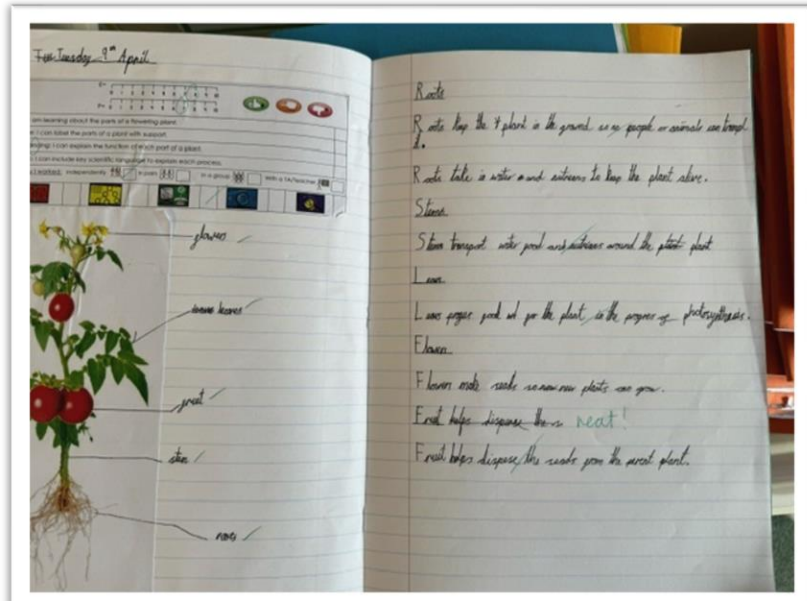 Tuesday 9th April
0 1 2 3 4 5 6 7 8 9 10
am learning about the parts of a flowering plant.
I can label the parts of a plant with support.
I can explain the function of each part of a plant.
I can include key scientific language to explain each process.
I worked: Independently In pairs In a group With a TA/teacher
flowers
leaves
fruit
stem
roots
Roots
Roots keep the plant in the ground so people or animals can
it.
Roots take in water and nutrients to keep the plant alive.
Stems
Stem transport water food and nutriens around the plant plant
Leaves
Leaves food for the plant, in the progres of photosynthesis.
Flowers
Flowers make seeds so new plants can grow.
Fruit helps dispease the s neat!
Fruit helps dispease the seeds from the parent plant.